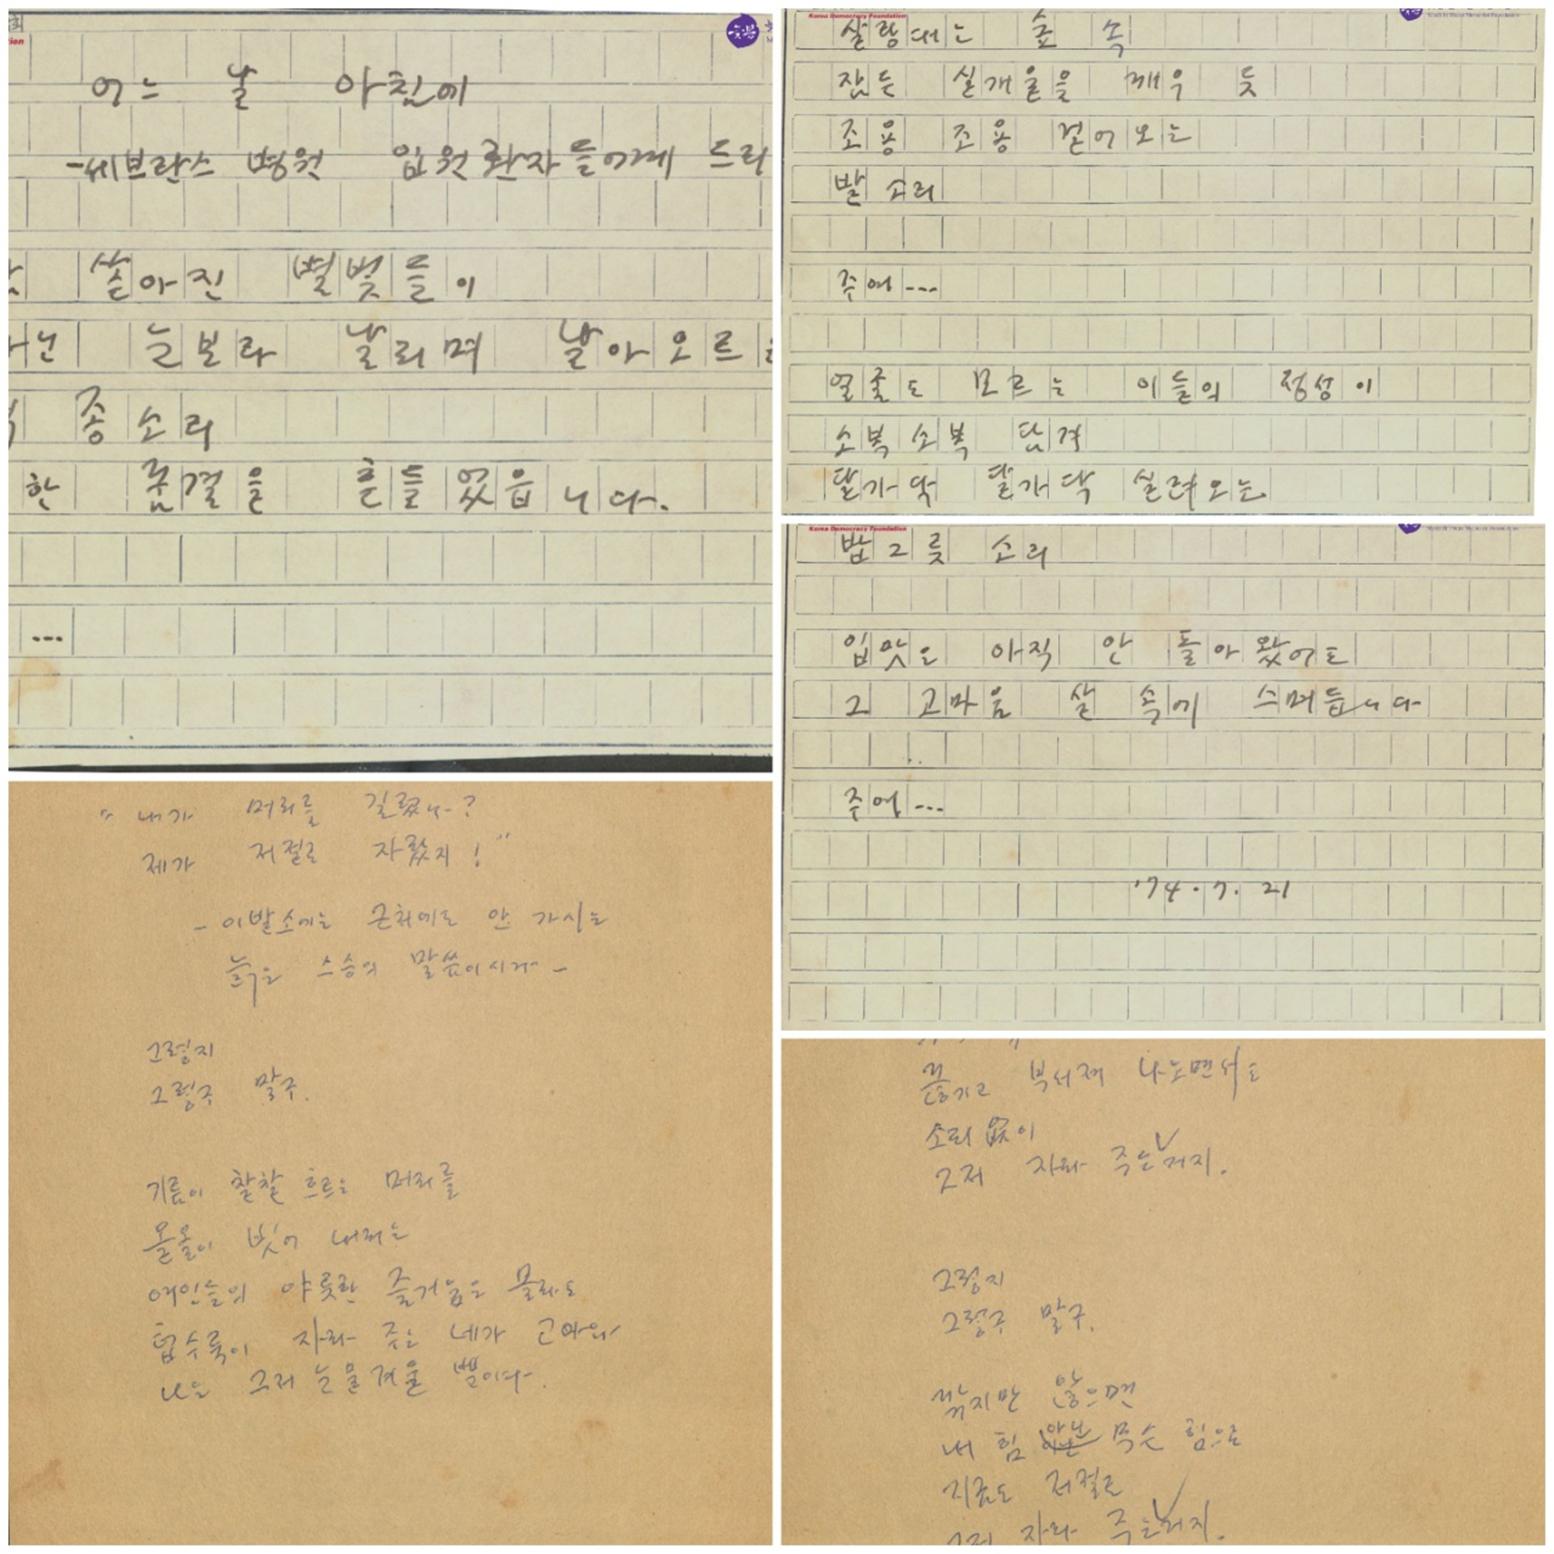 어느 날 아침에
-쎄브란스 병원 입원환자들에게 드리
쏟아진 별빛들이
눈보라 날리며 날아오르
종소리
한 꿈결을 흔들었읍니다.
...
Korea Democracy Foundation
살랑대는 숲 속
잠든 실개울을 깨우 듯
조용 조용 걷어오는
발 소리
주여...
얼굴도 모르는 이들의 정성이
소복소복 담겨
달가닥 달가닥 실려오는
Korea Democracy Foundation
밥그릇 소리
입맛은 아직 안 돌아왔어도
그 고마움 살 속에 스며듭니다
주여...
'74.7.21
"내가 머리를 길렀나?
제가 저절로 자랐지!"
- 이발소에는 근처에도 안 가시는
늙은 스승의 말씀이시다 -
그렇지
그렇구 말구.
기름이 찰찰 흐르는 머리를
올올이 빗어 내리는
여인들의 야릇한 즐거움은 몰라도
텁수룩이 자라 주는 네가 고마와
나는 그저 눈물겨울 뿐이다.
끊기고 부서져 나오면서도
소리 없이
그저 자라 주는 거지.
그렇지
그렇구 말구.
깎지만 않으면
내 힘 아닌 무슨 힘으로
지금도 저절로
그저 자라 주는 거지.